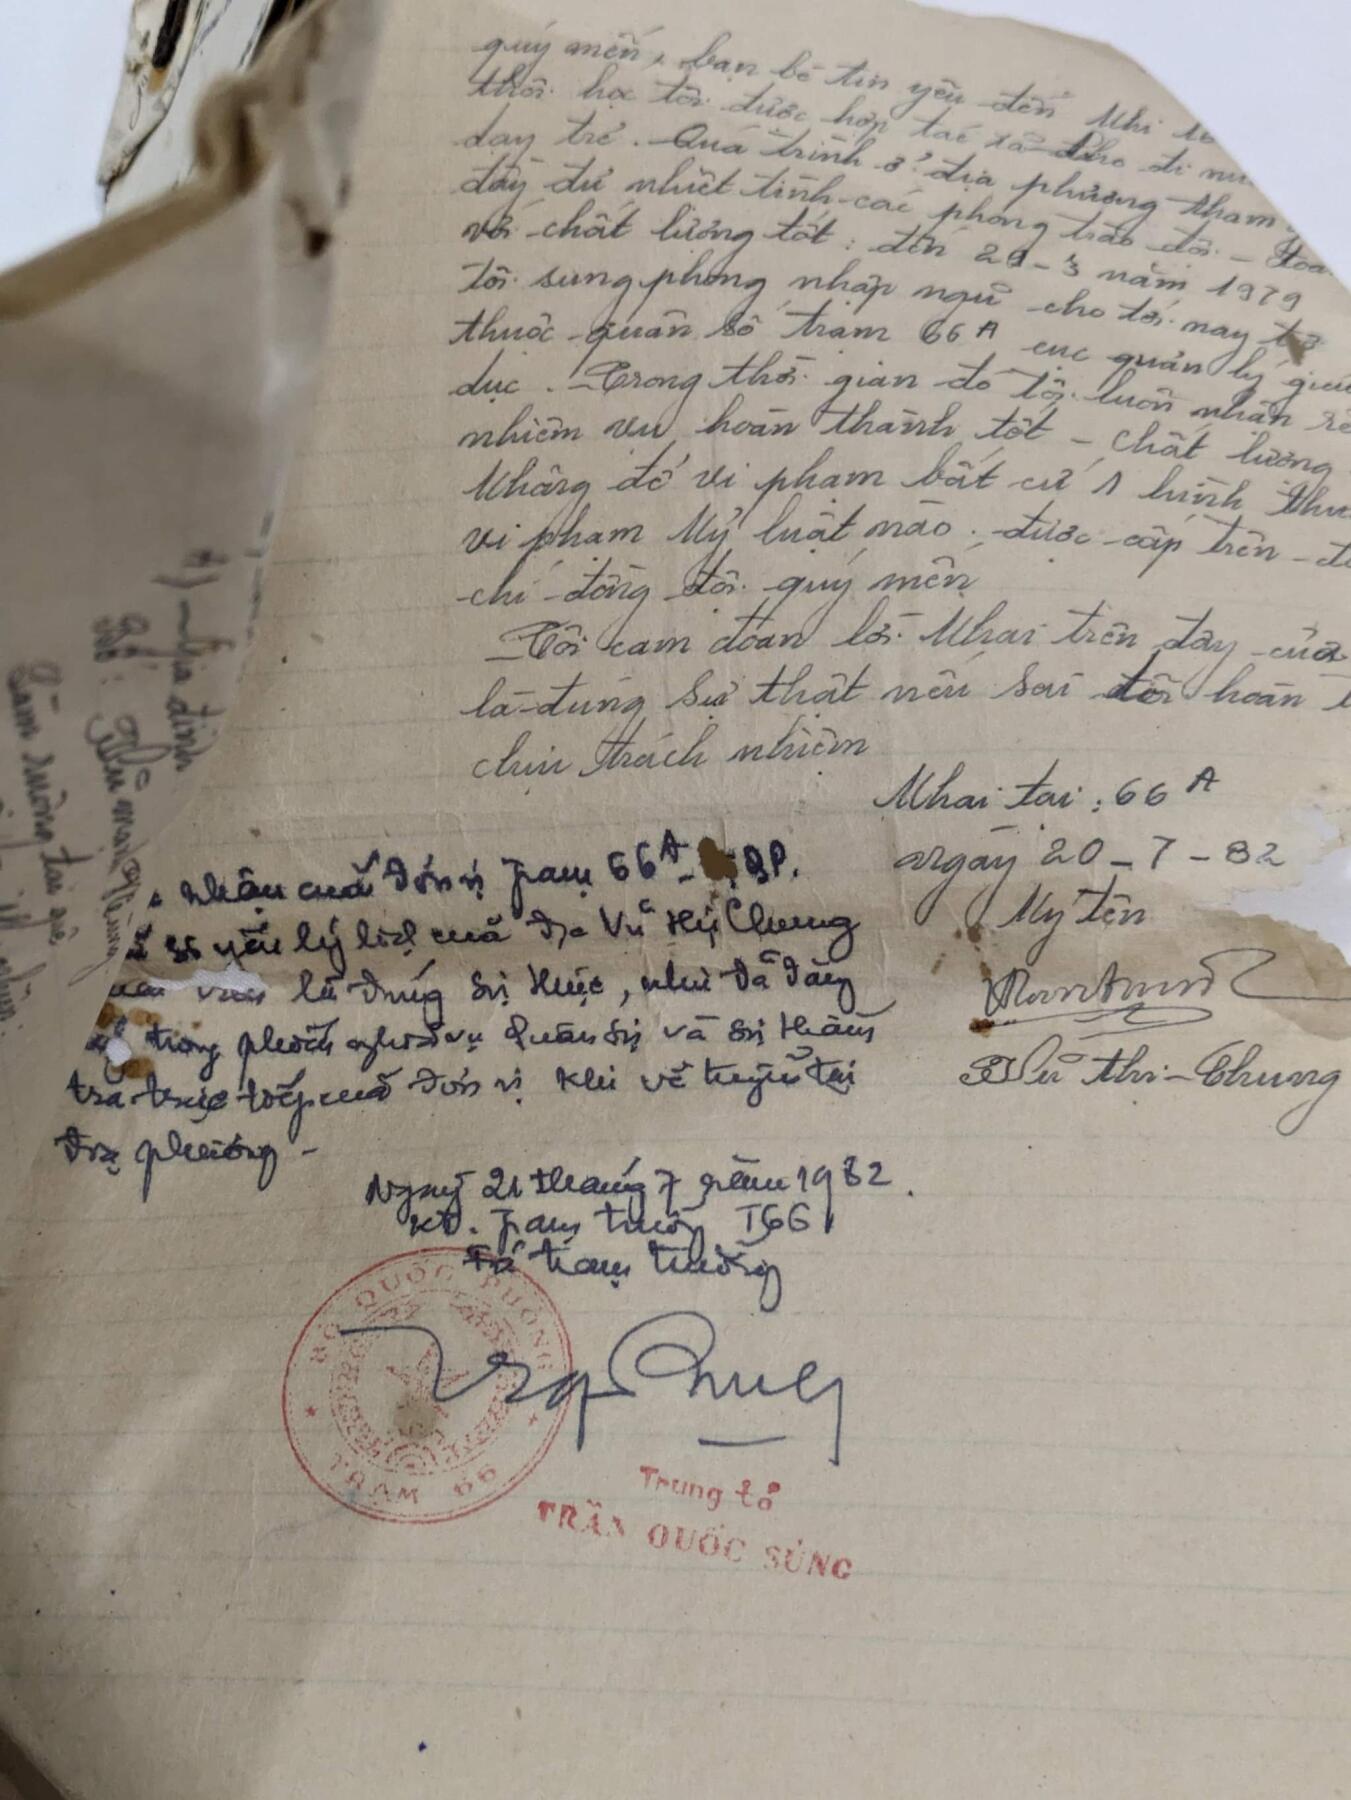 quý mến, bạn bè tin yêu đến khi
thôi học tôi được hợp tác xã cho đi
dạy trẻ. Quá trình ở địa phương tham
đầy đủ nhiệt tình các phong trào đội - Đoàn
với chất lượng tốt: đến 20-3 năm 1979
tôi sung phong nhập ngũ cho tới nay
thuộc quân số trạm 66A cục quản lý
dục. Trong thời gian đó tôi luôn nhận
nhiệm vụ hoàn thành tốt - chất lượng
không để vi phạm bất cứ 1 hình
vi phạm kỷ luật nào. được cấp trên
chí đồng đội quý mến
Tôi cam đoan lời khai trên đây của
là đúng sự thật nếu sai tôi hoàn
chịu trách nhiệm
Khai tại: 66A
ngày 20-7-82
Ký tên
Vũ Thị Chung
nhận của đơn vị Trạm 66A
yếu lý lịch của đ/c Vũ Thị Chung
là đúng sự thực, như đã đăng
trong phiếu nghĩa vụ quân sự và sự thẩm
tra trực tiếp của đơn vị khi về tuyển tại
địa phương -
Ngày 21 tháng 7 năm 1982.
KT. Trạm trưởng T66
Phó trạm trưởng
BỘ QUỐC PHÒNG
TRẠM 66
Trung tá
TRẦN QUỐC SỦNG
4) Gia đình
Bố: Vũ mạnh Hùng
Làm ruộng tại quê